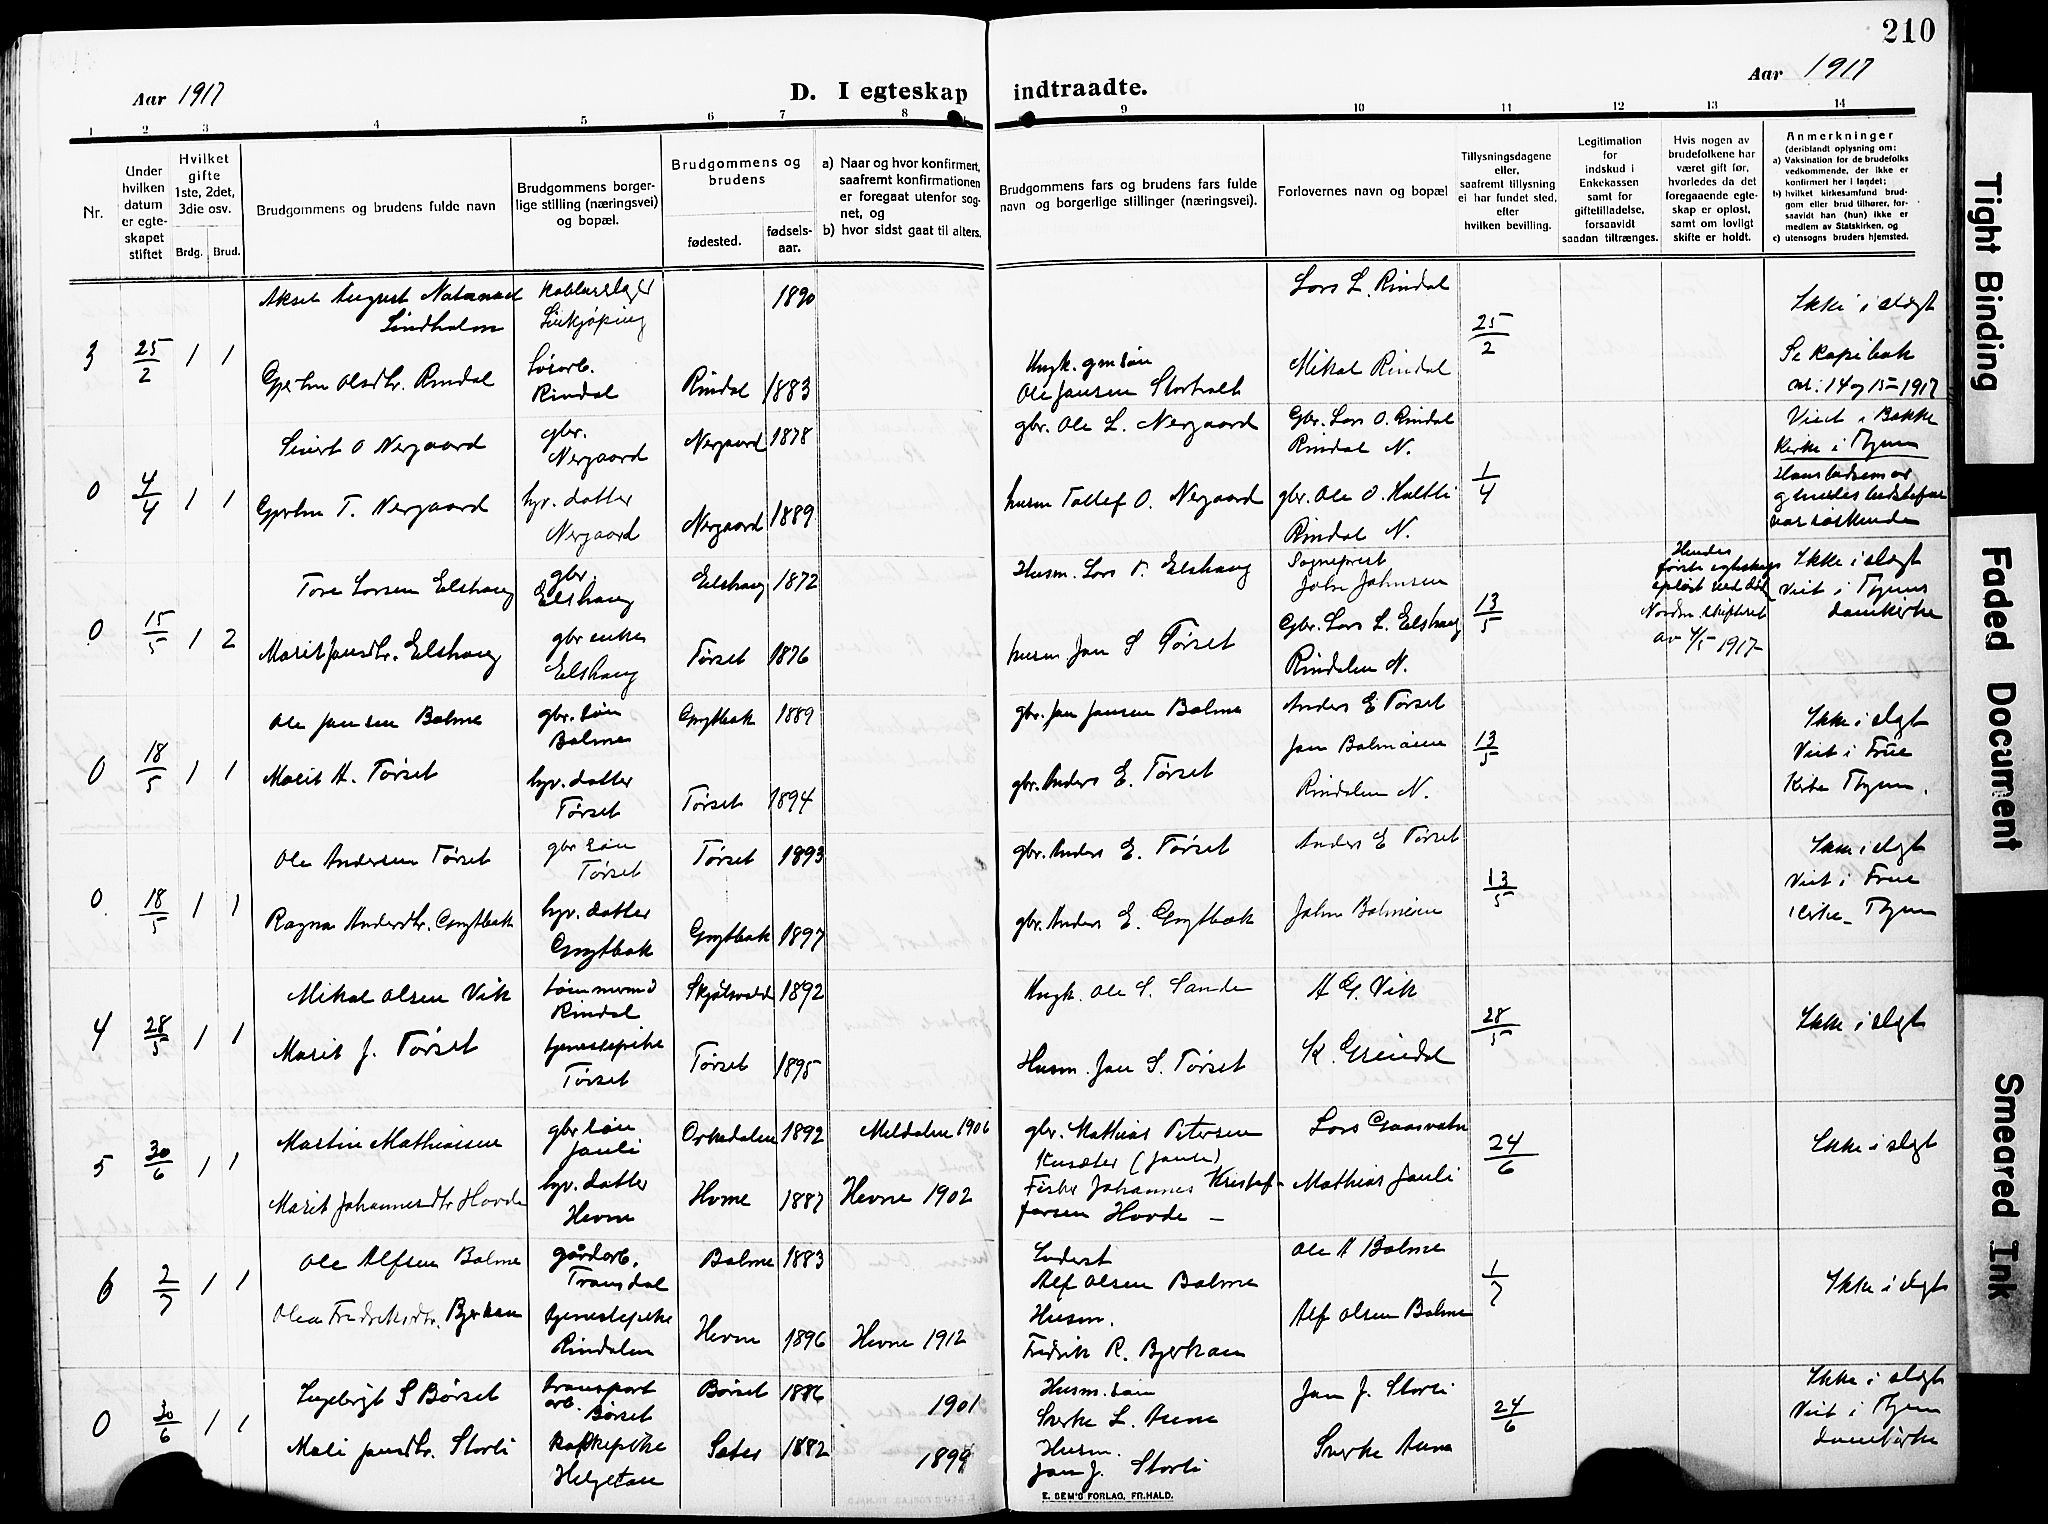 210
Aar 1917
D. I egteskap indtraadte.
Aar 1917
1 2 3 4 5 6 7 8 9 10 11 12 13 14
Nr.
Under hvilken datum er egteskapet stiftet
Hvilket gifte 1ste, 2det, 3die osv.
Brdg. Brud.
Brudgommens og brudens fulde navn
Brudgommens borgerlige stilling (næringsvei) og bopæl.
Brudgommens og brudens
fødested.
fødselsaar.
a) Naar og hvor konfirmert, saafremt konfirmationen er foregaat utenfor sognet, og
b) hvor sidst gaat til alters.
Brudgommens fars og brudens fars fulde navn og borgerlige stillinger (næringsvei).
Forlovernes navn og bopæl
Tillysningsdagene eller, saafremt tillysning ei har fundet sted, efter hvilken bevilling.
Legitimation for indskud i Enkekassen samt for giftetilladelse, forsaavidt saadan tiltrænges.
Hvis nogen av brudefolkene har været gift før, hvorledes da det foregaaende egteskap er opløst, samt om lovligt skifte er holdt.
Anmerkninger
(deriblandt oplysning om:
a) Vaksination for de brudefolks vedkommende, der ikke er konfirmert her i landet;
b) hvilket kirkesamfund brudgom eller brud tilhører, forsaavidt han (hun) ikke er medlem av Statskirken, og
c) utensogns bruders hjemsted.
3 25/2 1 1
Aksel August Natanael Lindholm
Linkjøping
1890
Lars L. Rindal
25/2
Ikke i slegt
Olsdtr. Rindal
Løsarb. Rindal
Rindal 1883
Ungk. gmsøn
Ole Jansen
Mikal Rindal
Se kopibok
nr. 14 og 15 - 1917
0 4/4 1 1
Sivert O Nergaard
gbr. Nergaard
Nergaard 1878
gbr. Ole L. Nergaard
Gbr. Lars O. Rindal
Rindal N.
1/4
Viet i Bakke
Kirke i Thjem
T. Nergaard
hjv. datter Nergaard
Nergaard 1889
husm Tollef O. Nergaard
gbr. Ole O. Holtli
Rindal N.
var søskende
0 15/5 1 2
Tore Larsen Elshaug
gbr Elshaug
Elshaug 1872
Husm. Lars T. Elshaug
Sogneprest
John Johnsen
13/5
Hendes
første egteskap
opløst ved død
av 4/5 1917
Ikke i slegt
Viet i Thjems
domkirke
Marit Jansdtr. Elshaug
gbr enke Elshaug
Tørset 1876
husm Jan S Tørset
Gbr. Lars L. Elshaug
Rindalen N.
0 18/5 1 1
Ole Jansen Bolme
gbr. søn Bolme
Grytbak 1889
gbr. Jan Jansen Bolme
Anders E Tørset
13/5
Ikke i slegt
Viet i Frue
Kirke Thjem.
Marit A. Tørset
hjv. datter Tørset
Tørset 1894
gbr. Anders E. Tørset
Jan Bolmeien
Rindalen N.
0. 18/5 1 1
Ole Andersen Tørset
gbr søn Tørset
Tørset 1893
gbr. Anders E. Tørset
Anders E Tørset
13/5
Ikke i slegt
Viet i Frue
kirke - Thjem
Ragna Andersdtr. Grytbak
hjv. datter Grytbak
Grytbak 1897
gbr. Anders E. Grytbak
John Bolmeien
4 28/5 1 1
Mikal Olsen Vik
tømmermd Rindal
1892
Ungk. Ole S. Sande
A G. Vik
28/5
Ikke i slegt
Marit J. Tørset
tjenestepike Tørset
Tørset 1895
Husm. Jan S. Tørset
K. Grindal
5 30/6 1 1
Martin Mathiassen
gbr søn Jauli
Orkedalen 1892
Meldalen 1906
gbr. Mathias Petersen
Kusæter (Jauli)
Lars Gaasvatn
24/6
Ikke i slegt
Marit Johannesdtr Hovde
hjv. datter Hevne
Hevne 1887
Hevne 1902
Fisker Johannes Kristof-
fersen Hovde -
Mathias Jauli
6 2/7 1 1
Ole Alfsen Bolme
gårdarb. Tramsdal
Bolme 1883
Inderst
Alf Olsen Bolme
Ole A Bolme
1/7
Ikke i slegt
Olea Fredriksdtr. Bjerkan
tjenestepike Rindalen
Hevne 1896
Hevne 1912
Husm.
Fredrik R. Bjerkan
Alf Olsen Bolme
0 30/6 1 1
Ingebrigt S Børset
transport arb. Børset
Børset 1886
1901
Husm. søn
Sverke L. Aune
Jan J. Storli
24/6
Ikke i slegt
Viet i Thjem
domkirke
Mali Jansdtr. Storli
kokkepike Helgetun
Sæter 1882
1899
Husm.
Jan J. Storli
Sverke Aune
E. SEM'S FORLAG, FR.HALD.
Tight Binding
Faded Document
Smeared Ink